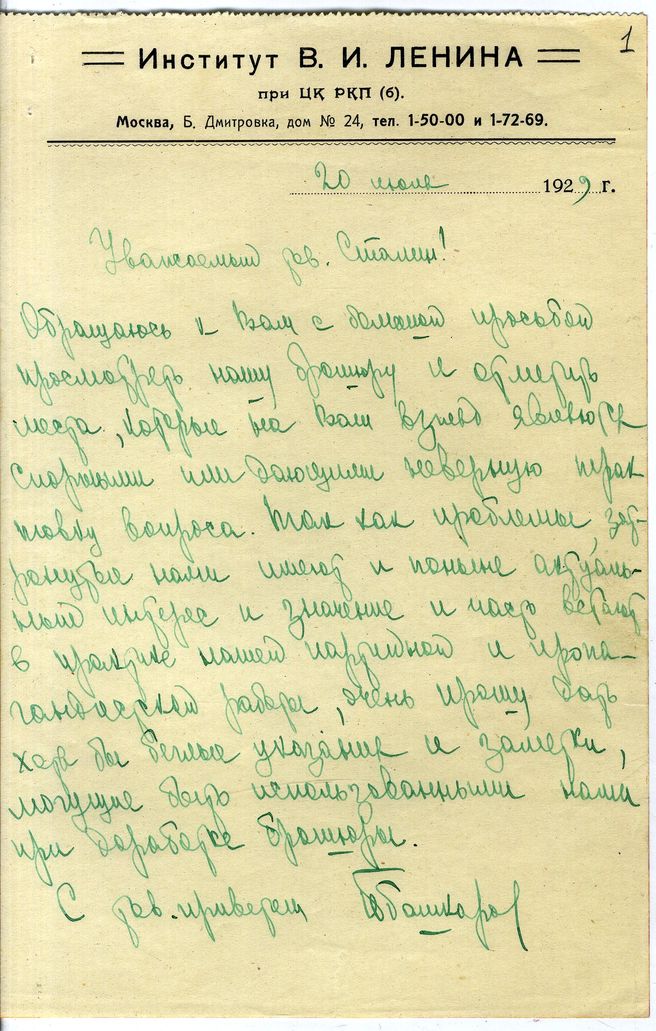 1
Институт В. И. ЛЕНИНА
при ЦК РКП (б).
Москва, Б. Дмитровка, дом № 24, тел. 1-50-00 и 1-72-69.
20 июля 1929 г.
Уважаемый тов. Сталин!
Обращаюсь к Вам с большой просьбой
просмотреть нашу брошюру и отметить
места, которые на Ваш взгляд являются
спорными или дающими неверную трак
товку вопроса. Так как проблемы, зат-
ронутые нами имеют и поныне актуаль-
ный интерес и значение и часто встают
в практике нашей партийной и пропа-
гандистской работы, очень прошу дать
хотя бы беглые указания и заметки,
могущие быть использованными нами
при доработке брошюры.
С тов. приветом